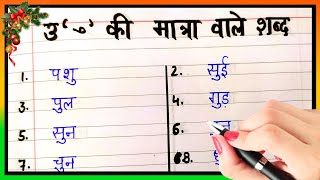 उ‘ ु’ की मात्रा वाले शब्द
1. पशु 2. सुई
3. पुल 4. गुड़
5. सुन 6.
7. चुन 88.